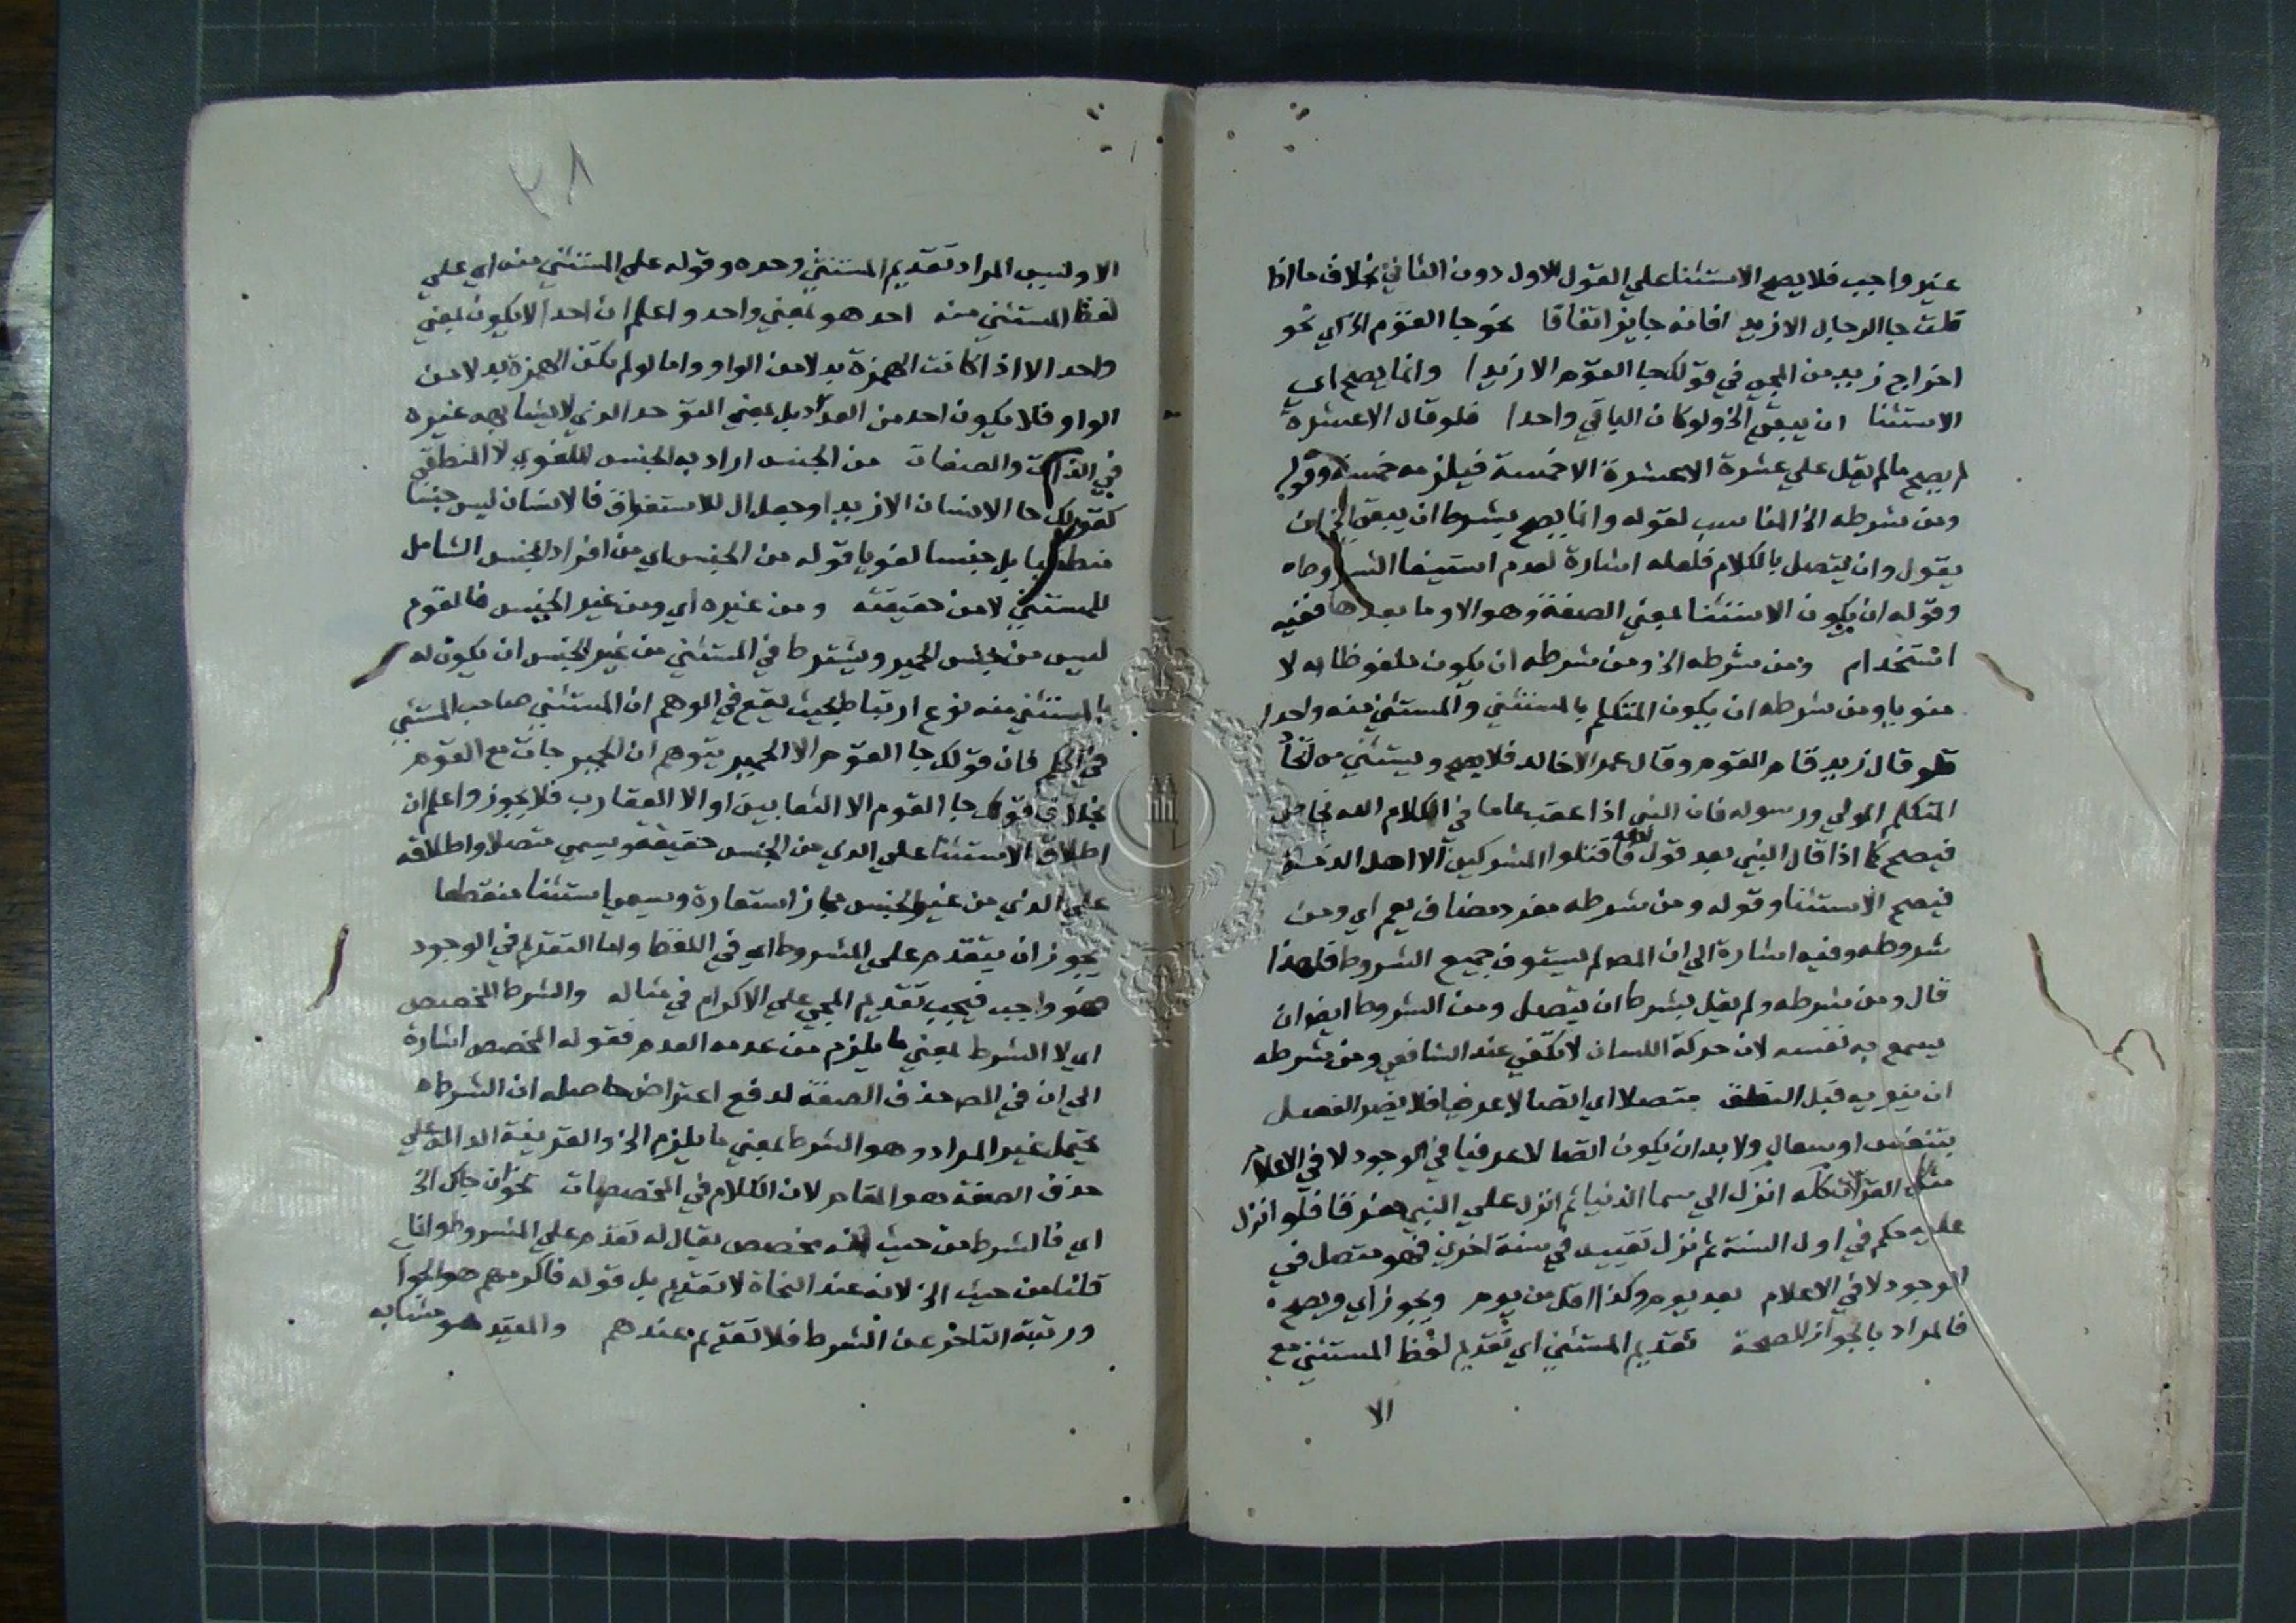 غير واجب فلا يصح الاستثنا علي القول الاول دون الثاني بخلاف ما اذا
قلت جا الرجال الا زيدا فانه جايز اتفاقا نحو جا القوم الخ اي نحو
اخراج زيد من المجي في قولك جا القوم الا زيدا وانما يصح اي
الاستثنا ان يبقي الخ ولو كان الباقي واحدا فلو قال الا عشرة
لم يصح ما لم يقل علي عشرة الا عشرة الا خمسة فيلزمه خمسة وقوله
ومن شرطه الخ المناسب لقوله وانما يصح بشرط ان يبقي الخ ان
يقول وان يتصل بالكلام فلعله اشارة لعدم استيفا الشروط
وقوله ان يكون الاستثنا بمعني الصفة وهو الا وما بعدها ففيه
استخدام ومن شرطه الخ ومن شرطه ان يكون ملفوظا به لا
منويا ومن شرطه ان يكون المتكلم بالمستثني والمستثني منه واحدا
فلو قال زيد قام القوم وقال عمر الا خالد فلا يصح ويستثني من اتحاد
المتكلم المولي ورسوله فان النبي اذا عقب عاما في كلام الله بخاص
فيصح كما اذا قال النبي بعد قوله فاقتلوا المشركين الا اهل الذمة
فيصح الاستثنا وقوله ومن شرطه مفرد مضاف يعم اي ومن
شروطه وفيه اشارة الي ان المص لم يستوف جميع الشروط فلهذا
قال ومن شرطه ولم يقل بشرط ان يتصل ومن الشروط ايضا ان
يسمع به نفسه لان حركة اللسان لا تكفي عند الشافعي ومن شرطه
ان ينويه قبل النطق متصلا اي اتصالا عرفيا فلا يضر الفصل
بتنفس او سعال ولا بد ان يكون اتصالا عرفيا في الوجود لا في الاعلام
مثلا القران كله انزل الي سما الدنيا ثم انزل علي النبي مفرقا فلو انزل
عليه حكم في اول السنة ثم نزل تقييده في سنة اخري فهو متصل في
الوجود لا في الاعلام بعد يوم وكذا اقل من يوم ويجوز اي ويصح
فالمراد بالجواز الصحة تقديم المستثني اي تقديم لفظ المستثني مع
الا
٢٨
الا وليس المراد تقديم المستثني وحده وقوله علي المستثني منه اي علي
لفظ المستثني منه احد هو بمعني واحد واعلم ان احدا لا يكون بمعني
واحد الا اذا كانت الهمزة بدلا من الواو واما لو لم تكن الهمزة بدلا من
الواو فلا يكون احد من العدد بل بمعني التوحد الذي لا يشابهه غيره
في الذات والصفات من الجنس اراد به الجنس اللغوي لا المنطقي
كقولك جا الانسان الا زيدا وجعل ال للاستغراق فالانسان ليس جنسا
منطقيا بل جنسا لغويا قوله من الجنس اي من افراد الجنس الشامل
للمستثني لا من حقيقته ومن غيره اي ومن غير الجنس فالقوم
ليس من جنس الحمير ويشترط في المستثني من غير الجنس ان يكون له
بالمستثني منه نوع ارتباط بحيث يقع في الوهم ان المستثني صاحب المستثني
في الحكم فان قولك جا القوم الا الحمير يتوهم ان الحمير جات مع القوم
بخلاف قولك جا القوم الا الثعابين او الا العقارب فلا يجوز واعلم ان
اطلاق الاستثنا علي الذي من الجنس حقيقة ويسمي متصلا واطلاقه
علي الذي من غير الجنس مجاز استعارة ويسمي استثنا منقطعا
يجوز ان يتقدم علي المشروط اي في اللفظ واما التقديم في الوجود
فهو واجب فيجب تقديم المجي علي الاكرام في مثاله والشرط المخصص
اي لا الشرط بمعني ما يلزم من عدمه العدم فقوله المخصص اشارة
الي ان في المص حذف الصفة لدفع اعتراض حاصله ان الشرط
يحتمل غير المراد وهو الشرط بمعني ما يلزم الخ والقرينة الدالة علي
حذف الصفة هو المقام لان الكلام في المخصصات نحو ان جاك الخ
اي فالشرط من حيث انه مخصص يقال له تقدم علي المشروط وانما
قلنا من حيث الخ لانه عند النحاة لا تقديم بل قوله فاكرمهم هو الجوا
ورتبة التاخر عن الشرط فلا تقديم عندهم والمقيد هو مشابه